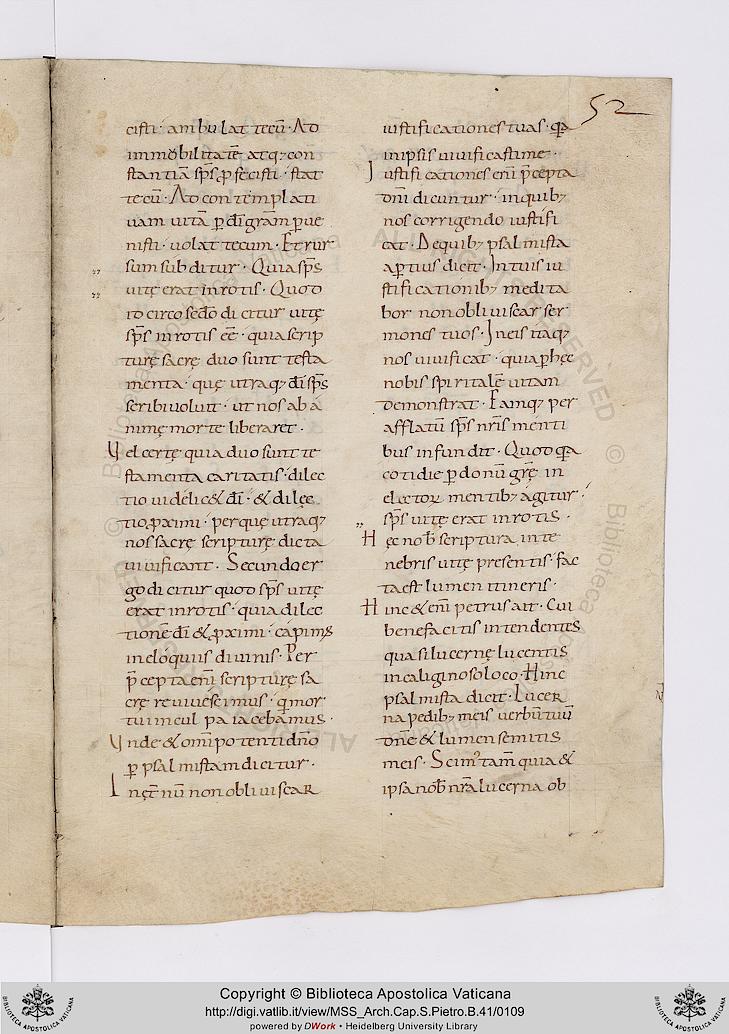 52
cisti · ambulat tecū · Ad
immobilitatē atq; con
stantiā sp̄s, ꝓfecisti · stat
tecū · Ad contēplati
uam uitā ꝑ dī grām ꝑue
nisti · uolat tecum · Et rur
sum subditur · Quia sp̄s
uitę erat in rotis · Quod
idcirco sedo dicitur uitę
sp̄s in rotis eē · quia scrip
turę sacrę duo sunt testa
menta · quę utraq; dī sp̄s
scribi uoluit · ut nos ab á
nimę morte liberaret ·
Vel certę quia duo sunt te
stamenta caritatis · dilec
tio uidelic& dī · & dilec
tio ꝓximi · per quę utraq;
nos sacrę scripturę dicta
uiuificant · Secundo er
go dicitur quod sp̄s uitę
erat in rotis · quia dilec
tionē dī & ꝓximi · capimus
in eloquiis diuinis · Per
p̄cepta enī scripturę sa
crę reuiuiscimus · qui mor
tui in culpa iacebamus ·
Vnde & omīpotenti dn̄o
ꝑ psalmistam dicitur ·
In ęt̄nū non obliuiscar
iustificationes tuas · qa
in ipsis uiuificasti me ·
Iustificationes enī p̄cepta
dn̄i dicuntur · in quib;
nos corrigendo iustifi
cat · De quib; psalmista
aꝑtius dicit · In tuis iu
stificationib; medita
bor non obliuiscar ser
mones tuos · In eis itaq;
nos uiuificat · quia ꝑ hęc
nobis spiritalē uitam
demonstrat · Eamq; per
afflatū sp̄s nr̄is menti
bus infundit · Quod qa
cotidie ꝑ donū grę in
electoꝝ mentib; agitur ·
sp̄s uitę erat in rotis ·
Hęc nob̄ scriptura in te
nebris uitę presentis · fac
ta est lumen itineris ·
Hinc & enī petrus ait · Cui
benefacitis intendentes
quasi lucernę lucentis
in caliginoso loco · Hinc
psalmista dicit · Lucer
na pedib; meis uerbū tuū
dn̄e & lumen semitis
meis · Scim' tam̄ quia &
ipsa nob̄ nr̄a lucerna ob
Copyright © Biblioteca Apostolica Vaticana
http://digi.vatlib.it/view/MSS_Arch.Cap.S.Pietro.B.41/0109
powered by DWork • Heidelberg University Library